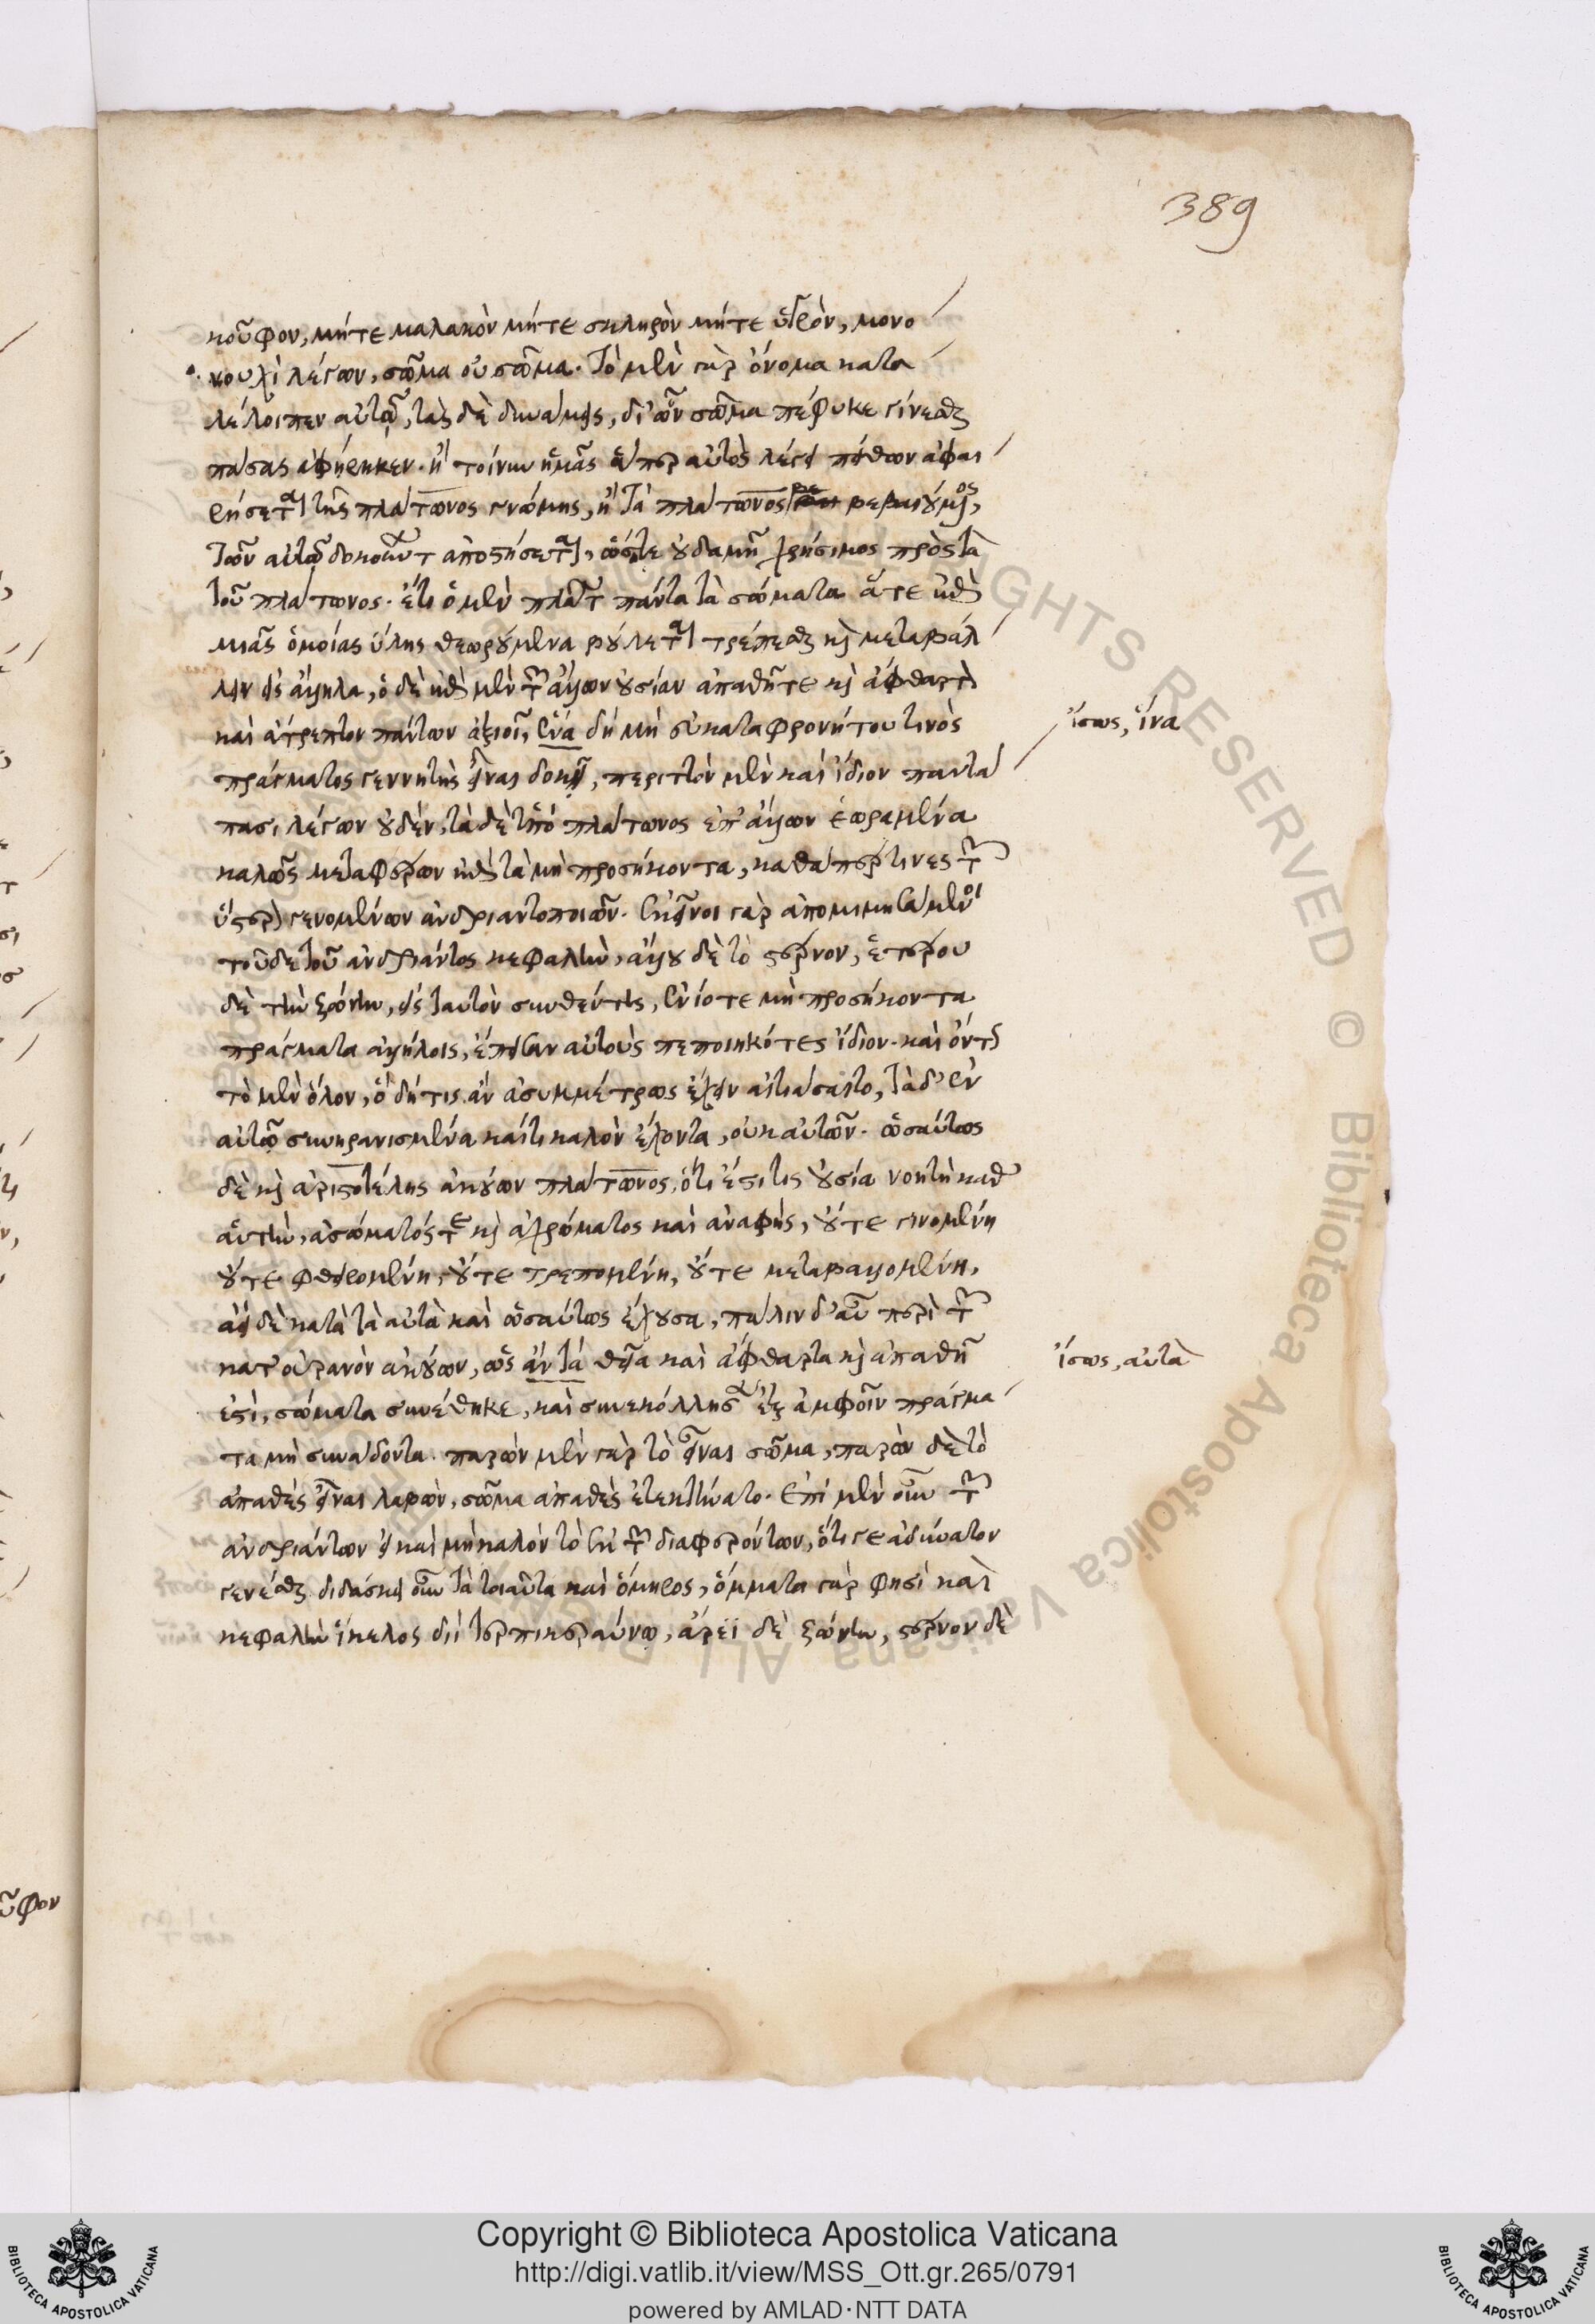 389
κοῦφον, μήτε μαλακὸν μήτε σκληρὸν μήτε ὑγρὸν, μονο
νουχὶ λέγων, σῶμα οὐ σῶμα. τὸ μὲν γὰρ ὄνομα κατα
λέλοιπεν αὐτῷ, τὰς δὲ δυνάμεις, δι' ὧν σῶμα πέφυκε γίνεσθαι
πάσας ἀφῄρηκεν. ἢ τοίνυν ἡμᾶς ἅπερ αὐτὸς λέγει πείθων ἀφαι
ρήσεται τῆς πλάτωνος γνώμης, ἢ τὰ πλάτωνος βεβαιούμενος,
τῶν αὐτῷ δοκούντων ἀποστήσεται, ὥστε οὐδαμῇ χρήσιμος πρὸς τὰ
τοῦ πλάτωνος. ἔτι ὁ μὲν πλάτων πάντα τὰ σώματα ἅτε ἐπὶ
μιᾶς ὁμοίας ὕλης θεωρούμενα βούλεται τρέπεσθαι καὶ μεταβάλ
λειν εἰς ἄλληλα, ὁ δὲ ἐπὶ μὲν τῶν ἄλλων οὐσίαν ἀπαθῆ τε καὶ ἄφθαρτον
καὶ ἄτρεπτον πάντων ἀξιοῖ, ἕνα δὴ μὴ εὐκαταφρονήτου τινὸς
ἴσως, ἵνα
πράγματος γεννητὴς εἶναι δοκῇ, περιττὸν μὲν καὶ ἴδιον παντά
πασι λέγων οὐδὲν, τὰ δὲ ὑπὸ πλάτωνος ἐπ' ἄλλων ἑωραμένα
καλῶς μεταφέρων ἐπὶ τὰ μὴ προσήκοντα, καθάπερ τινὲς τῶν
ὕστερον γενομένων ἀνδριαντοποιῶν. ἐκεῖνοι γὰρ ἀπομιμησάμενοι
τοῦδε τοῦ ἀνδριάντος κεφαλὴν, ἄλλου δὲ τὸ στέρνον, ἑτέρου
δὲ τὴν ζώνην, εἰς ταυτὸν συνθέντες, ἐνίοτε μὴ προσήκοντα
πράγματα ἀλλήλοις, ἔπεισαν αὐτοὺς πεποιηκότες ἴδιον. καὶ ὄντως
τὸ μὲν ὅλον, ὃ δή τις ἂν ἀσυμμέτρως ἔχειν αἰτιάσαιτο, τὰ δ' ἐν
αὐτῷ συνηρανισμένα καί τι καλὸν ἔχοντα, οὐκ αὐτῶν. ὡσαύτως
δὲ καὶ ἀριστοτέλης ἀκούων πλάτωνος, ὅτι ἔστι τις οὐσία νοητὴ καθ'
αὑτὴν, ἀσώματός τε καὶ ἀχρώματος καὶ ἀναφὴς, οὔτε γινομένη
οὔτε φθειρομένη, οὔτε τρεπομένη, οὔτε μεταβαλλομένη,
ἀεὶ δὲ κατὰ τὰ αὐτὰ καὶ ὡσαύτως ἔχουσα, πάλιν δ' αὖ περὶ τῶν
κατ' οὐρανὸν ἀκούων, ὡς ἂν τὰ θεῖα καὶ ἄφθαρτα καὶ ἀπαθῆ
ἴσως, αὐτὰ
ἐστὶ, σώματα συνέθηκε, καὶ συνεκόλλησεν ἐξ ἀμφοῖν πράγμα
τα μὴ συνάδοντα. παρ' ὧν μὲν γὰρ τὸ εἶναι σῶμα, παρ' ὧν δὲ τὸ
ἀπαθὲς εἶναι λαβὼν, σῶμα ἀπαθὲς ἐτεκτήνατο. ἐπὶ μὲν οὖν τῶν
ἀνδριάντων εἰ καὶ μὴ καλὸν τὸ ἐκ τῶν διαφερόντων, ὅτι γε ἀδύνατον
γενέσθαι διδάσκει οὖν τὰ τοιαῦτα καὶ ὅμηρος, ὄμματα γάρ φησι καὶ
κεφαλὴν ἴκελος διὶ τερπικεραύνῳ, ἄρεϊ δὲ ζώνην, στέρνον δὲ
ῦφον
Copyright © Biblioteca Apostolica Vaticana
http://digi.vatlib.it/view/MSS_Ott.gr.265/0791
powered by AMLAD·NTT DATA